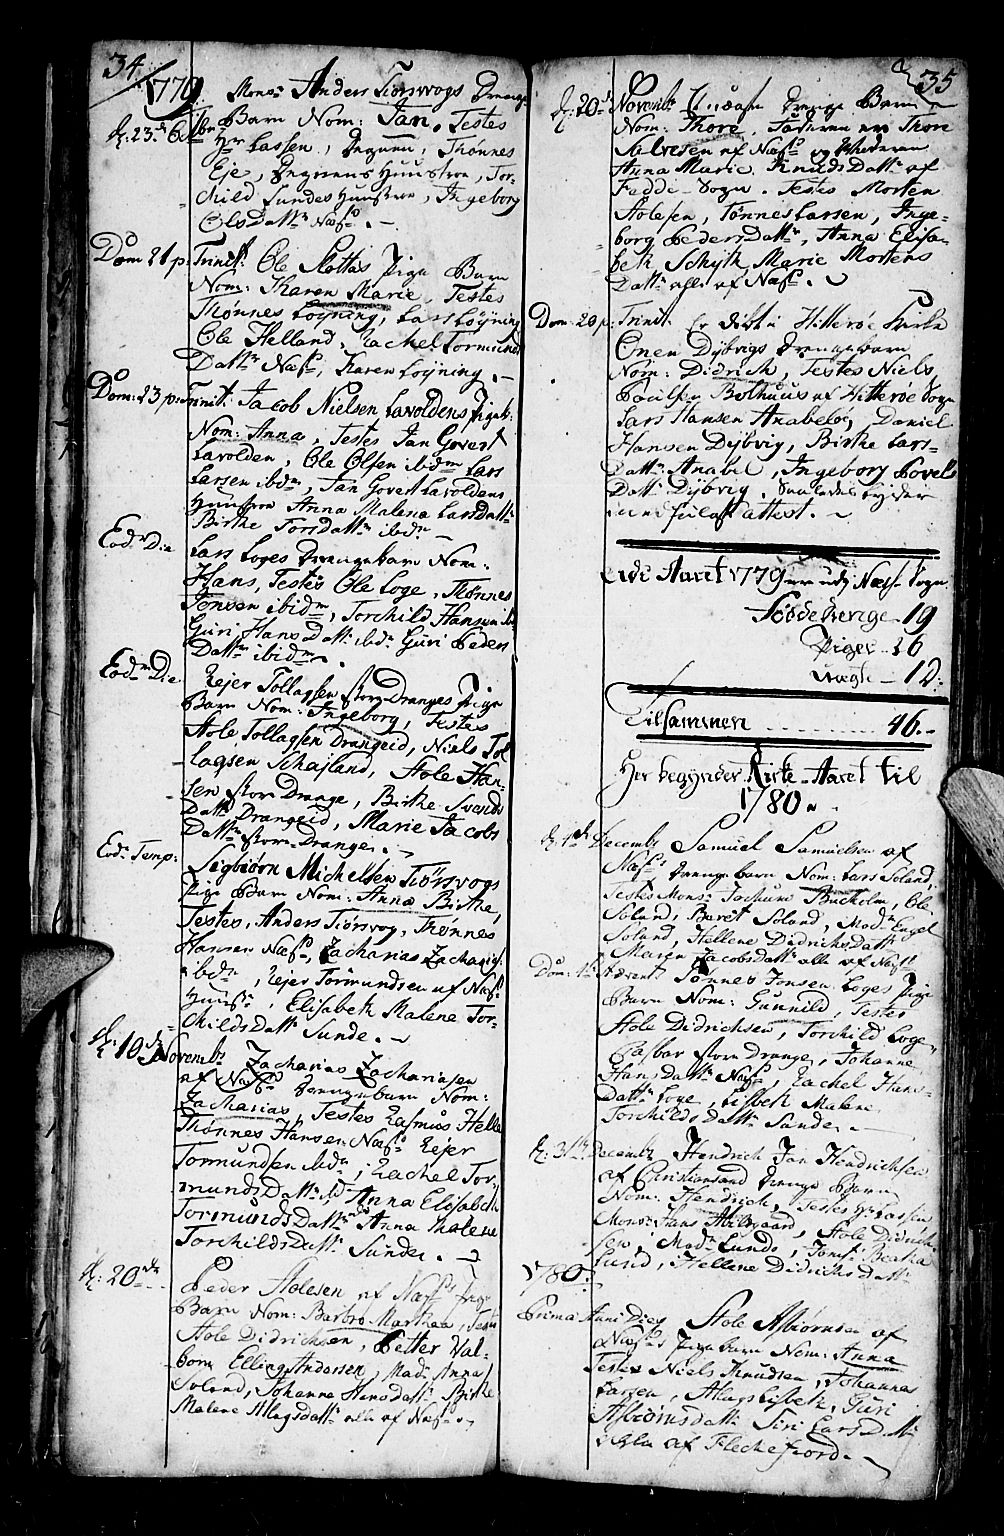 34
1779.
Mons: Anders Tiørsvogs Drenge
d: 23de 8br Barn Nom: Jan, Testes
Hr Lassen, Thønnes
Eje, Huustroe, Tor-
child Sundes Huustroe, Ingeborg
OlsDattr Næss.
Dom 21 p: Trinit: Ole Slottes Pige Barn
Nom: Karen Marie, Testes
Thønnes Løyning, Lars Løyning
Ole Helland, Rachel Tormunds
Dattr Næss, Karen Løyning.
Dom: 23 p: Trinit: Jacob Nielsen Lavoldens Pigeb:
Nom: Anna, Testes Jan Govert
Lavolden, Ole Olsen ibidm Lars
Larsen ibdm, Jan Govert Lavoldens
Huustroe Anna Malena Larsdattr
Birthe Torsdattr ibdm
Eodm Die Lars Loges Drengebarn Nom:
Hans, Testes Ole Loge, Thønnes
Jensen ibidm, Torchild Hansen ibd
Guri HansDattr ibdm Guri Peders
Dattr ibidm.
Eodm Die Rejer Tollagsen Stor Dranges Pige
Barn Nom: Ingeborg, Testes
Aole Tollagsen Drangeid, Niels Tol
lagsen Schajland, Aole Han-
sen Stor Drange, Birthe Svends
Dattr Drangeid, Marie Jacobs
Dattr Stor Drange.
Eodm Temp: Sigbiørn Michelsen Tiørsvogs
Pige Barn Nom: Anna Birthe,
Testes, Anders Tiørsvog, Thønnes
Hansen Næss, Zacharias Zacharias:
ibdm, Rejer Tormundsen af Næss
Huust, Elisabeth Malene Tor-
childsDattr Sunde.
d: 10de Novembr Zacharias Zachariasen
af Næss Drengebarn Nom:
Zacharias, Testes Rasmus Helle
Thønnes Hansen Næss Rejer
Tormundsen ibdm, Rachel Tor-
mundsDattr ibdm Anna Elisabeth
TormundsDattr Anna Malene
TorchildsDattr Sunde.
d: 20de Peder Aolesen af Næss Pige
Barn Nom: Barbro Marthea, Testes
Aole Didrichsen, Petter Val-
born Elling Andersen, Madm Anna
Soland, Johanne Hansdattr Birthe
Malene Allagsdattr alle af Næss
35
d: 20de Novembr Drenge Barn
Nom: Thore, Faderen er Thore
Salvesen af Næss og Moderen
Anna Marie KnudsDattr af
Fedde-Sogn. Testes Morten
Aolesen, Tønnes Larsen, Inge-
borg PedersDattr, Anna Elisa-
beth Schytt Marie Mortens
Dattr alle af Næss.
Dom: 20 p: Trinit: Er døbt i Hitterøe Kirke
Onen Dybvigs Drengebarn
Nom: Didrich, Testes Niels
Poulsen Bolhuus af Hitterøe Sogn
Lars Hansen Anabeløe, Daniel
Hansen Dybvig, Birthe Lars-
Dattr Anabel, Ingeborg Povels
Dattr Dybvig. Saaledes lyder
attest.
Udi Aaret 1779 ere udj Næss Sogn
Føøde Drenge 19
Piger 16
Uægte 12.
Tilsammen 46.
Her begynder Kirke-Aaret til
1780.
d: 4de Decembr Samuel Samuelsen af
Næss Drenge barn Nom: Lars Soland,
Testes Mons: Jochum Bucholm, Ole
Soland, Beret Soland, Madm Engel
Soland, Hellene DidrichsDattr
Maren JacobsDattr alle af Næss
Dom: 1te Advent Tønnes Jonsen Loges Pige
Barn Nom: Gunnild, Testes
Aole Didrichsen, Torchild Loge
Casbar Stor Drange, Johanne
HansDattr Næss, Rachel Hans-
Dattr Loge, Lisbeth Malene
TorchildsDattr Sunde.
d: 31te Decembr Hendrich Jan Hendrichsen
af Christiansand Drenge Barn
Nom: Hendrich, Testes Hr Lassen
Mons: Hans Abilgaard, Aole Didrich-
sen, Madm Lunds, Jomf: Beathe
Lund, Hellene DidrichsDattr
1780:
Prima Anni Diey Aole Asbiørnsen af
Næss Pigebarn Nom: Anna
Testes Niels Knudsen, Johannes
Larsen, Alags Lisbeth, Guri
Asbiørnsdattr Siri LarsDattr
alle af Fleckefiord.